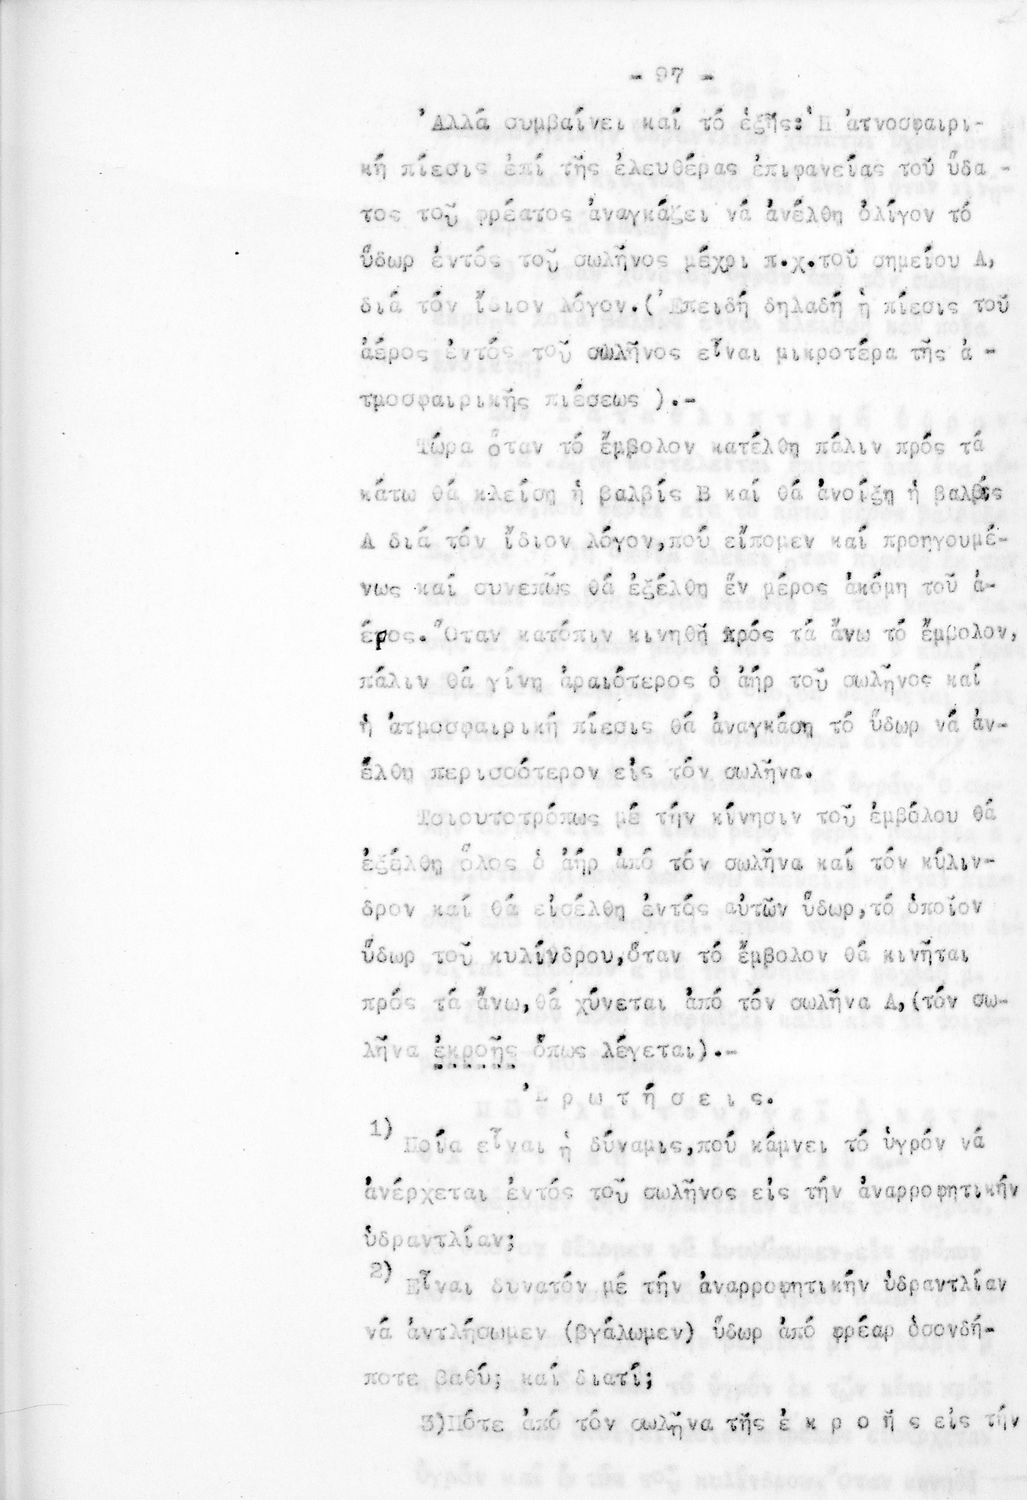 - 97 -
Ἀλλά συμβαίνει καί τό ἑξῆς: Ἡ ἀτνοσφαιρι-
κή πίεσις ἐπί τῆς ἐλευθέρας ἐπιφανείας τοῦ ὕδα -
τος τοῦ φρέατος ἀναγκάζει νά ἀνέλθη ὀλίγον τό
ὕδωρ ἐντός τοῦ σωλῆνος μέχρι π.χ.τοῦ σημείου Δ,
διά τόν ἴδιον λόγον.(Ἐπειδή δηλαδή ἡ πίεσις τοῦ
ἀέρος ἐντός τοῦ σωλῆνος εἶναι μικροτέρα τῆς ἀ -
τμοσφαιρικῆς πιέσεως ).-
Τώρα ὅταν τό ἔμβολον κατέλθη πάλιν πρός τά
κάτω θά κλείση ἡ βαλβίς Β καί θά ἀνοίξη ἡ βαλβίς
Α διά τόν ἴδιον λόγον,πού εἴπομεν καί προηγουμέ-
νως καί συνεπῶς θά ἐξέλθη ἕν μέρος ἀκόμη τοῦ ἀ-
έρος. Ὅταν κατόπιν κινηθῆ πρός τά ἄνω τό ἔμβολον,
πάλιν θά γίνη ἀραιότερος ὁ ἀήρ τοῦ σωλῆνος καί
ἡ ἀτμοσφαιρική πίεσις θά ἀναγκάση τό ὕδωρ νά ἀν-
έλθη περισσότερον εἰς τόν σωλῆνα.
Τοιουτοτρόπως μέ τήν κίνησιν τοῦ ἐμβόλου θά
ἐξέλθη ὅλος ὁ ἀήρ ἀπό τόν σωλῆνα καί τόν κύλιν-
δρον καί θά εἰσέλθη ἐντός αὐτῶν ὕδωρ,τό ὁποῖον
ὕδωρ τοῦ κυλίνδρου,ὅταν τό ἔμβολον θά κινῆται
πρός τά ἄνω,θά χύνεται ἀπό τόν σωλῆνα Δ,(τόν σω-
λῆνα ἐκροῆς ὅπως λέγεται).-
Ἐ ρ ω τ ή σ ε ι ς.
1) Ποία εἶναι ἡ δύναμις,πού κάμνει τό ὑγρόν νά
ἀνέρχεται ἐντός τοῦ σωλῆνος εἰς τήν ἀναρροφητικήν
ὑδραντλίαν;
2) Εἶναι δυνατόν μέ τήν ἀναρροφητικήν ὑδραντλίαν
νά ἀντλήσωμεν (βγάλωμεν) ὕδωρ ἀπό φρέαρ ὁσονδή-
ποτε βαθύ; καί διατί;
3)Πότε ἀπό τόν σωλῆνα τῆς ἐ κ ρ ο ῆ ς εἰς τήν